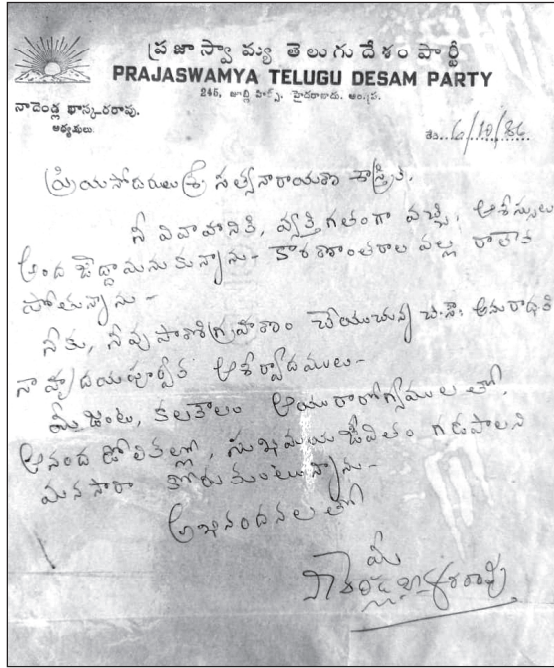 ప్రజాస్వామ్య తెలుగుదేశం పార్టీ
PRAJASWAMYA TELUGU DESAM PARTY
245, జూబ్లీ హిల్స్, హైదరాబాదు. ఆం.ప్ర.
నాదెండ్ల భాస్కరరావు.
అధ్యక్షులు.
తేది. 6/10/86
ప్రియసోదరులు శ్రీ సత్యనారాయణ శాస్త్రికి,
నీ వివాహానికి, వ్యక్తిగతంగా వచ్చి, ఆశీస్సులు
అంద జేద్దామనుకున్నాను - కారణాంతరాల వల్ల రాలేక
పోతున్నాను -
నీకు, నీవు పాణిగ్రహణం చేయుచున్న చి.సౌ. అనురాధకి
నా హృదయపూర్వక ఆశీర్వాదములు -
మీ జంట, కలకాలం ఆయురారోగ్యములతో,
ఆనంద డోలికల్లో, సుఖమయ జీవితం గడపాలని
మనసారా కోరుకుంటున్నాను -
అభినందనలతో
మీ
నాదెండ్ల భాస్కరరావు